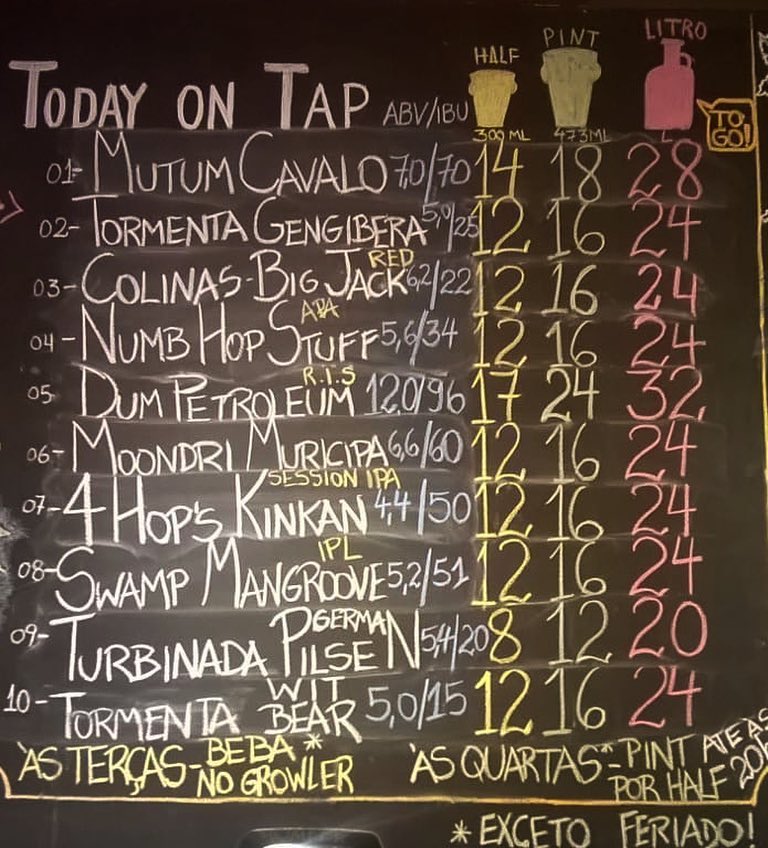 TODAY ON TAP ABV/IBU HALF PINT LITRO
300 ML 473ML L TO GO!
01- MUTUM CAVALO 7,0/70 14 18 28
02- TORMENTA GENGIBERA 5,0/25 12 16 24
RED
03- COLINAS-BIG JACK 6,2/22 12 16 24
APA
04- NUMB HOP STUFF 5,6/34 12 16 24
R.I.S
05 DUM PETROLEUM 12,0/96 17 24 32
06- MOONDRI MURICIPA 6,6/60 12 16 24
SESSION IPA
07- 4 HOP'S KINKAN 4,4/50 12 16 24
IPL
08- SWAMP MANGROOVE 5,2/51 12 16 24
GERMAN
09- TURBINADA PILSEN 5,4/20 8 12 20
WIT
10- TORMENTA BEAR 5,0/15 12 16 24
ÀS TERÇAS-BEBA* NO GROWLER
ÀS QUARTAS*-PINT POR HALF ATÉ AS 20h
*EXCETO FERIADO!